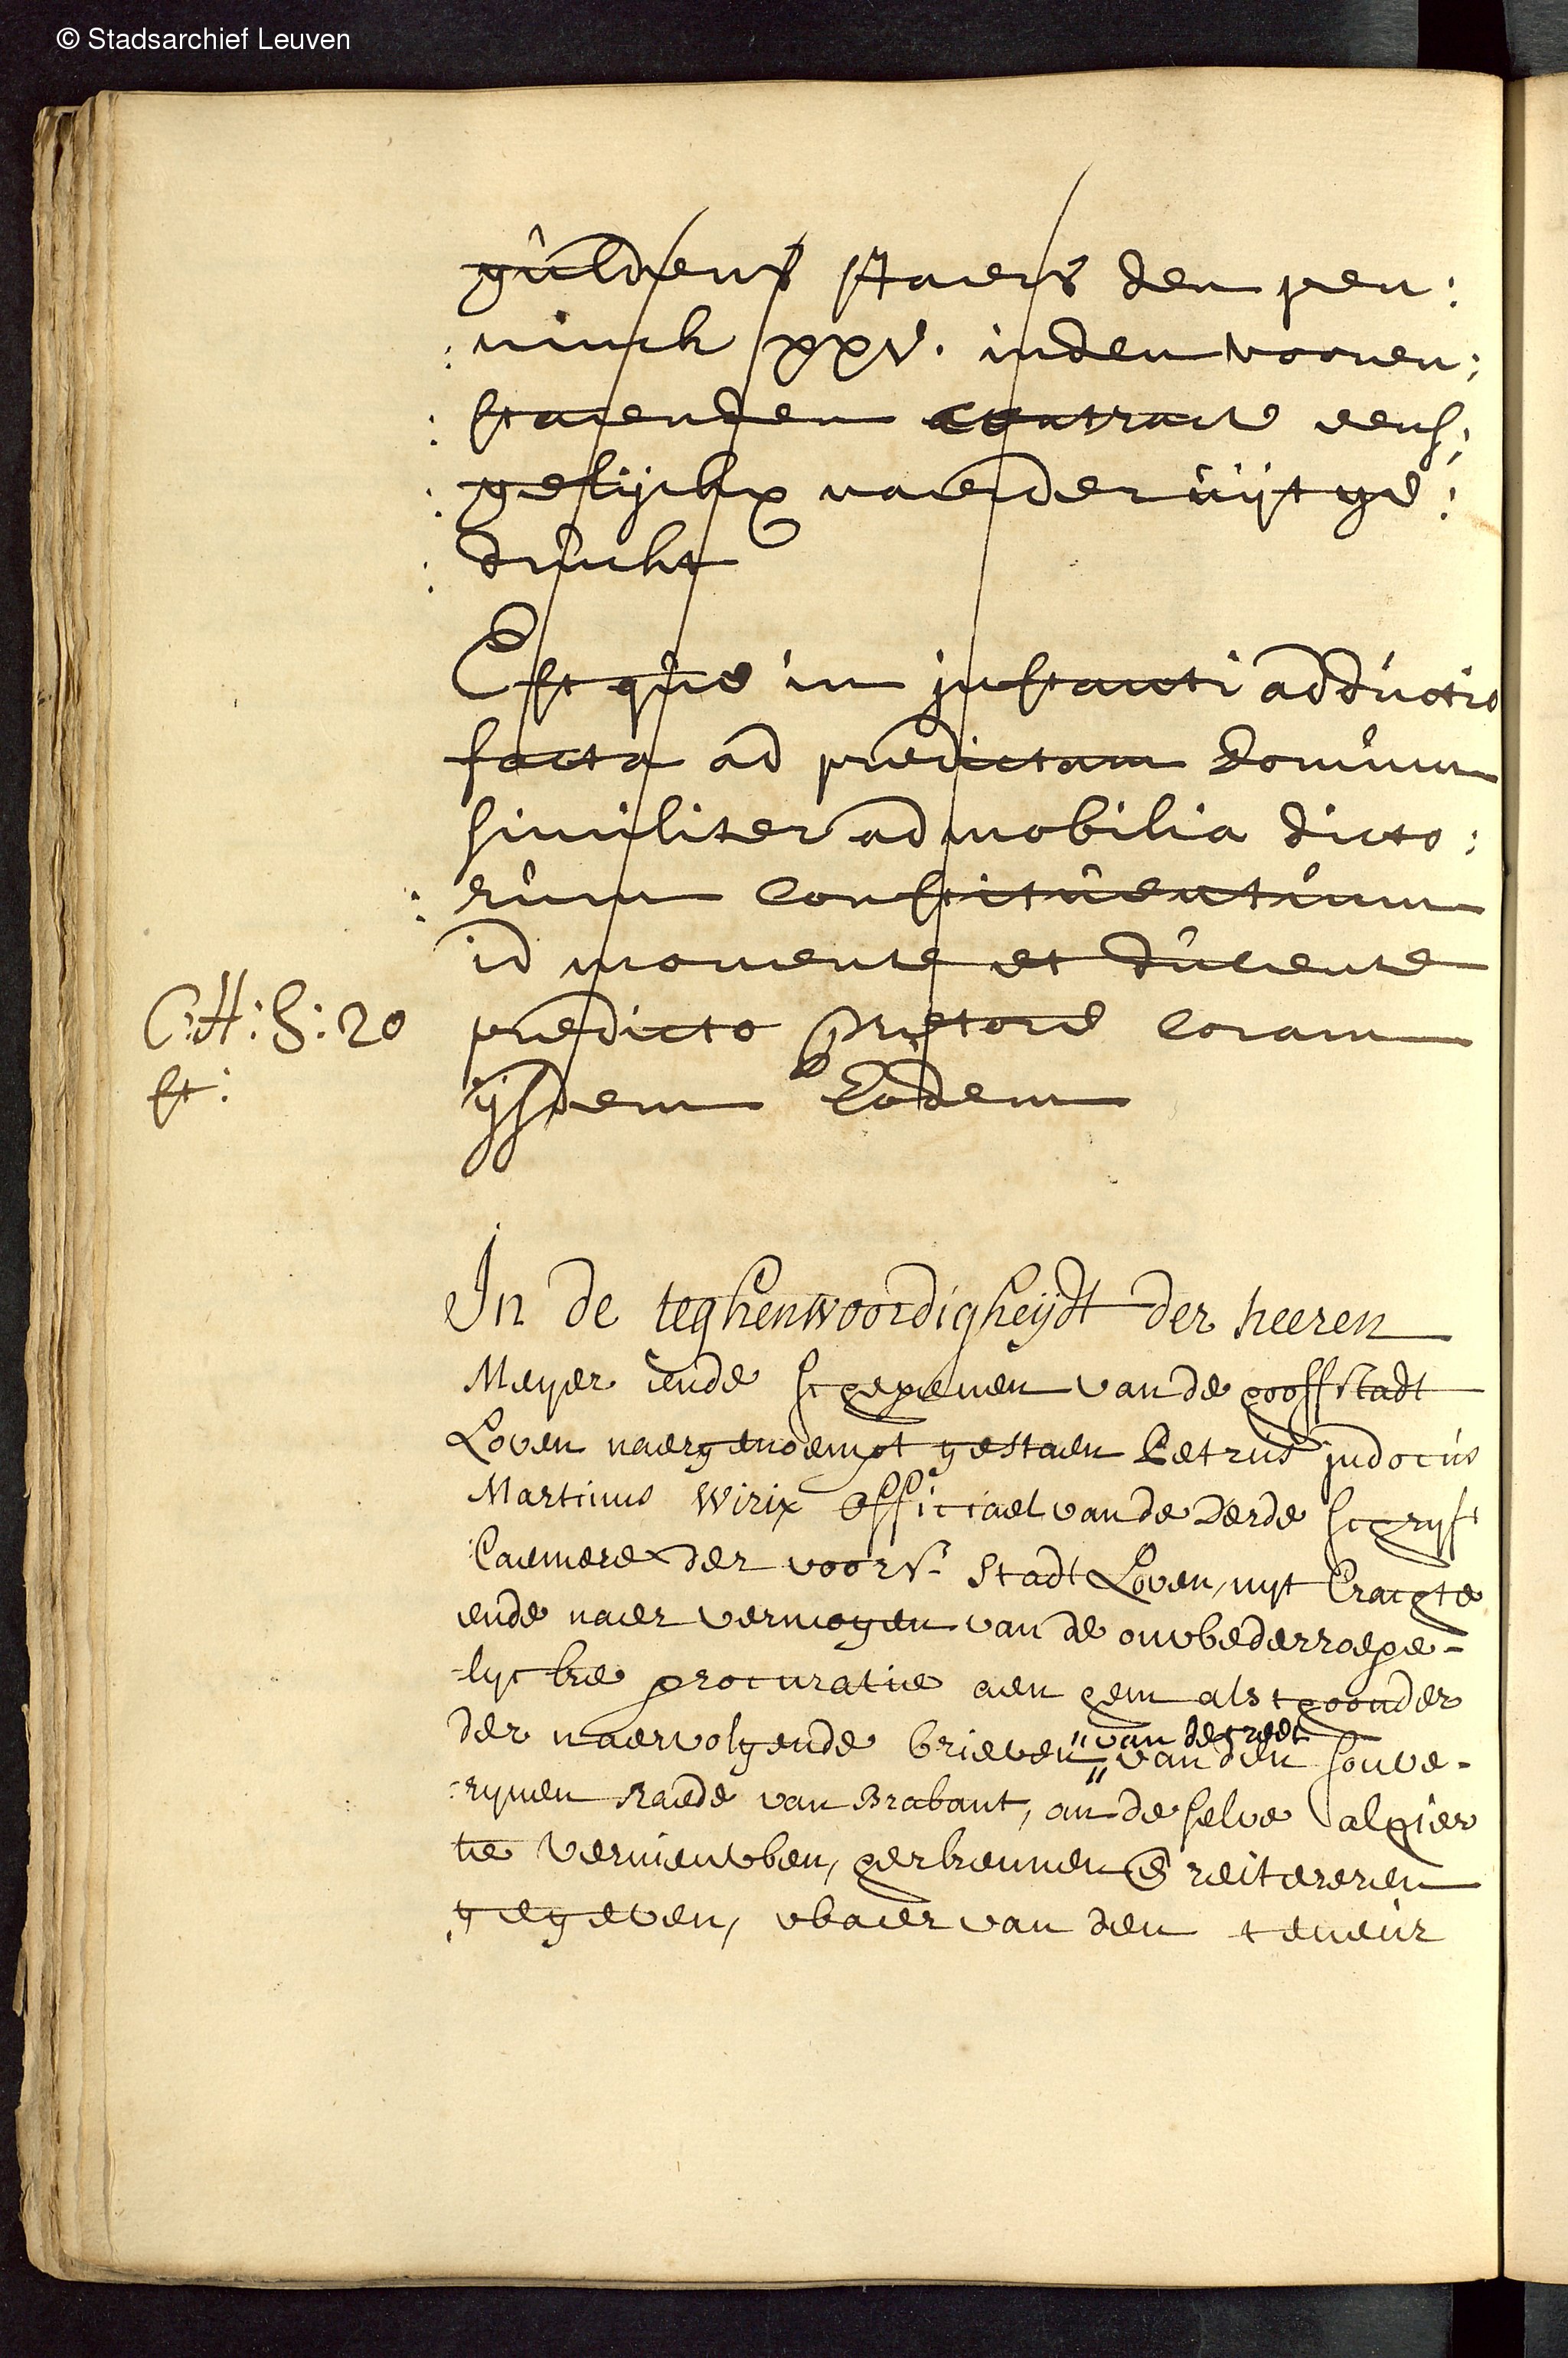 © Stadsarchief Leuven
guldens staens den pen:
:ninck xxv. inden vooren:
:staenden contracte eens:
:gelijckx naerder uijtge:
:druckt
Estque in instanti adductio
facta ad predictam domum
similiter ad mobilia dicto:
:rum constituentium
id monente et ducente
C:H:S:20
st:
predicto pretore coram
ijsdem Eodem
In de teghenwoordigheijdt der heeren
Meyer ende schepenen van de hooffstadt
Loven naergenoempt gestaen Petrus judocus
Martinus Wirix officiael van de derde schryf
Caemere der voors. stadt Loven, uyt Crachte
ende naer vermogen van de onwederroepe-
-lycke procuratie aen hem als thoonder
der naervolgende brieven "van decreet
" van den souve-
-rynen Raede van Brabant, om de selve alhier
te vernieuwen, herkennen & reitereren
gegeven, waer van den teneur